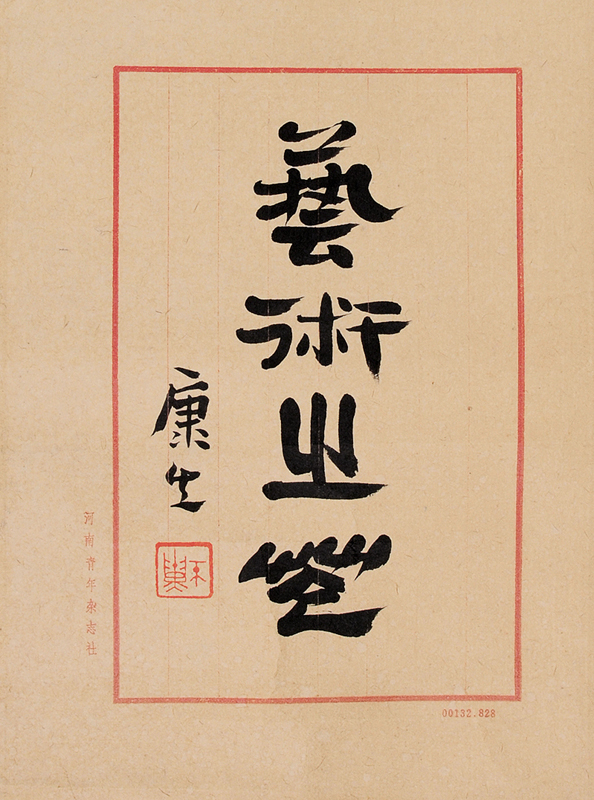 藝術之
康生
河南青年杂志社
00132.828